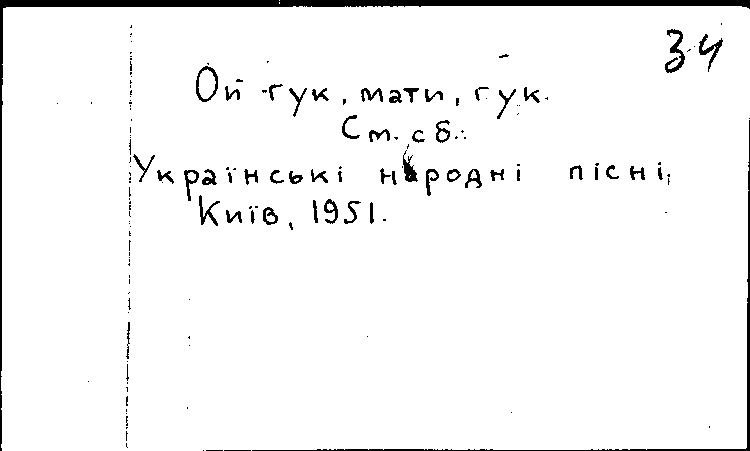 34
Ой гук, мати, гук.
См. сб.:
Українські народні пісні,
Київ, 1951.